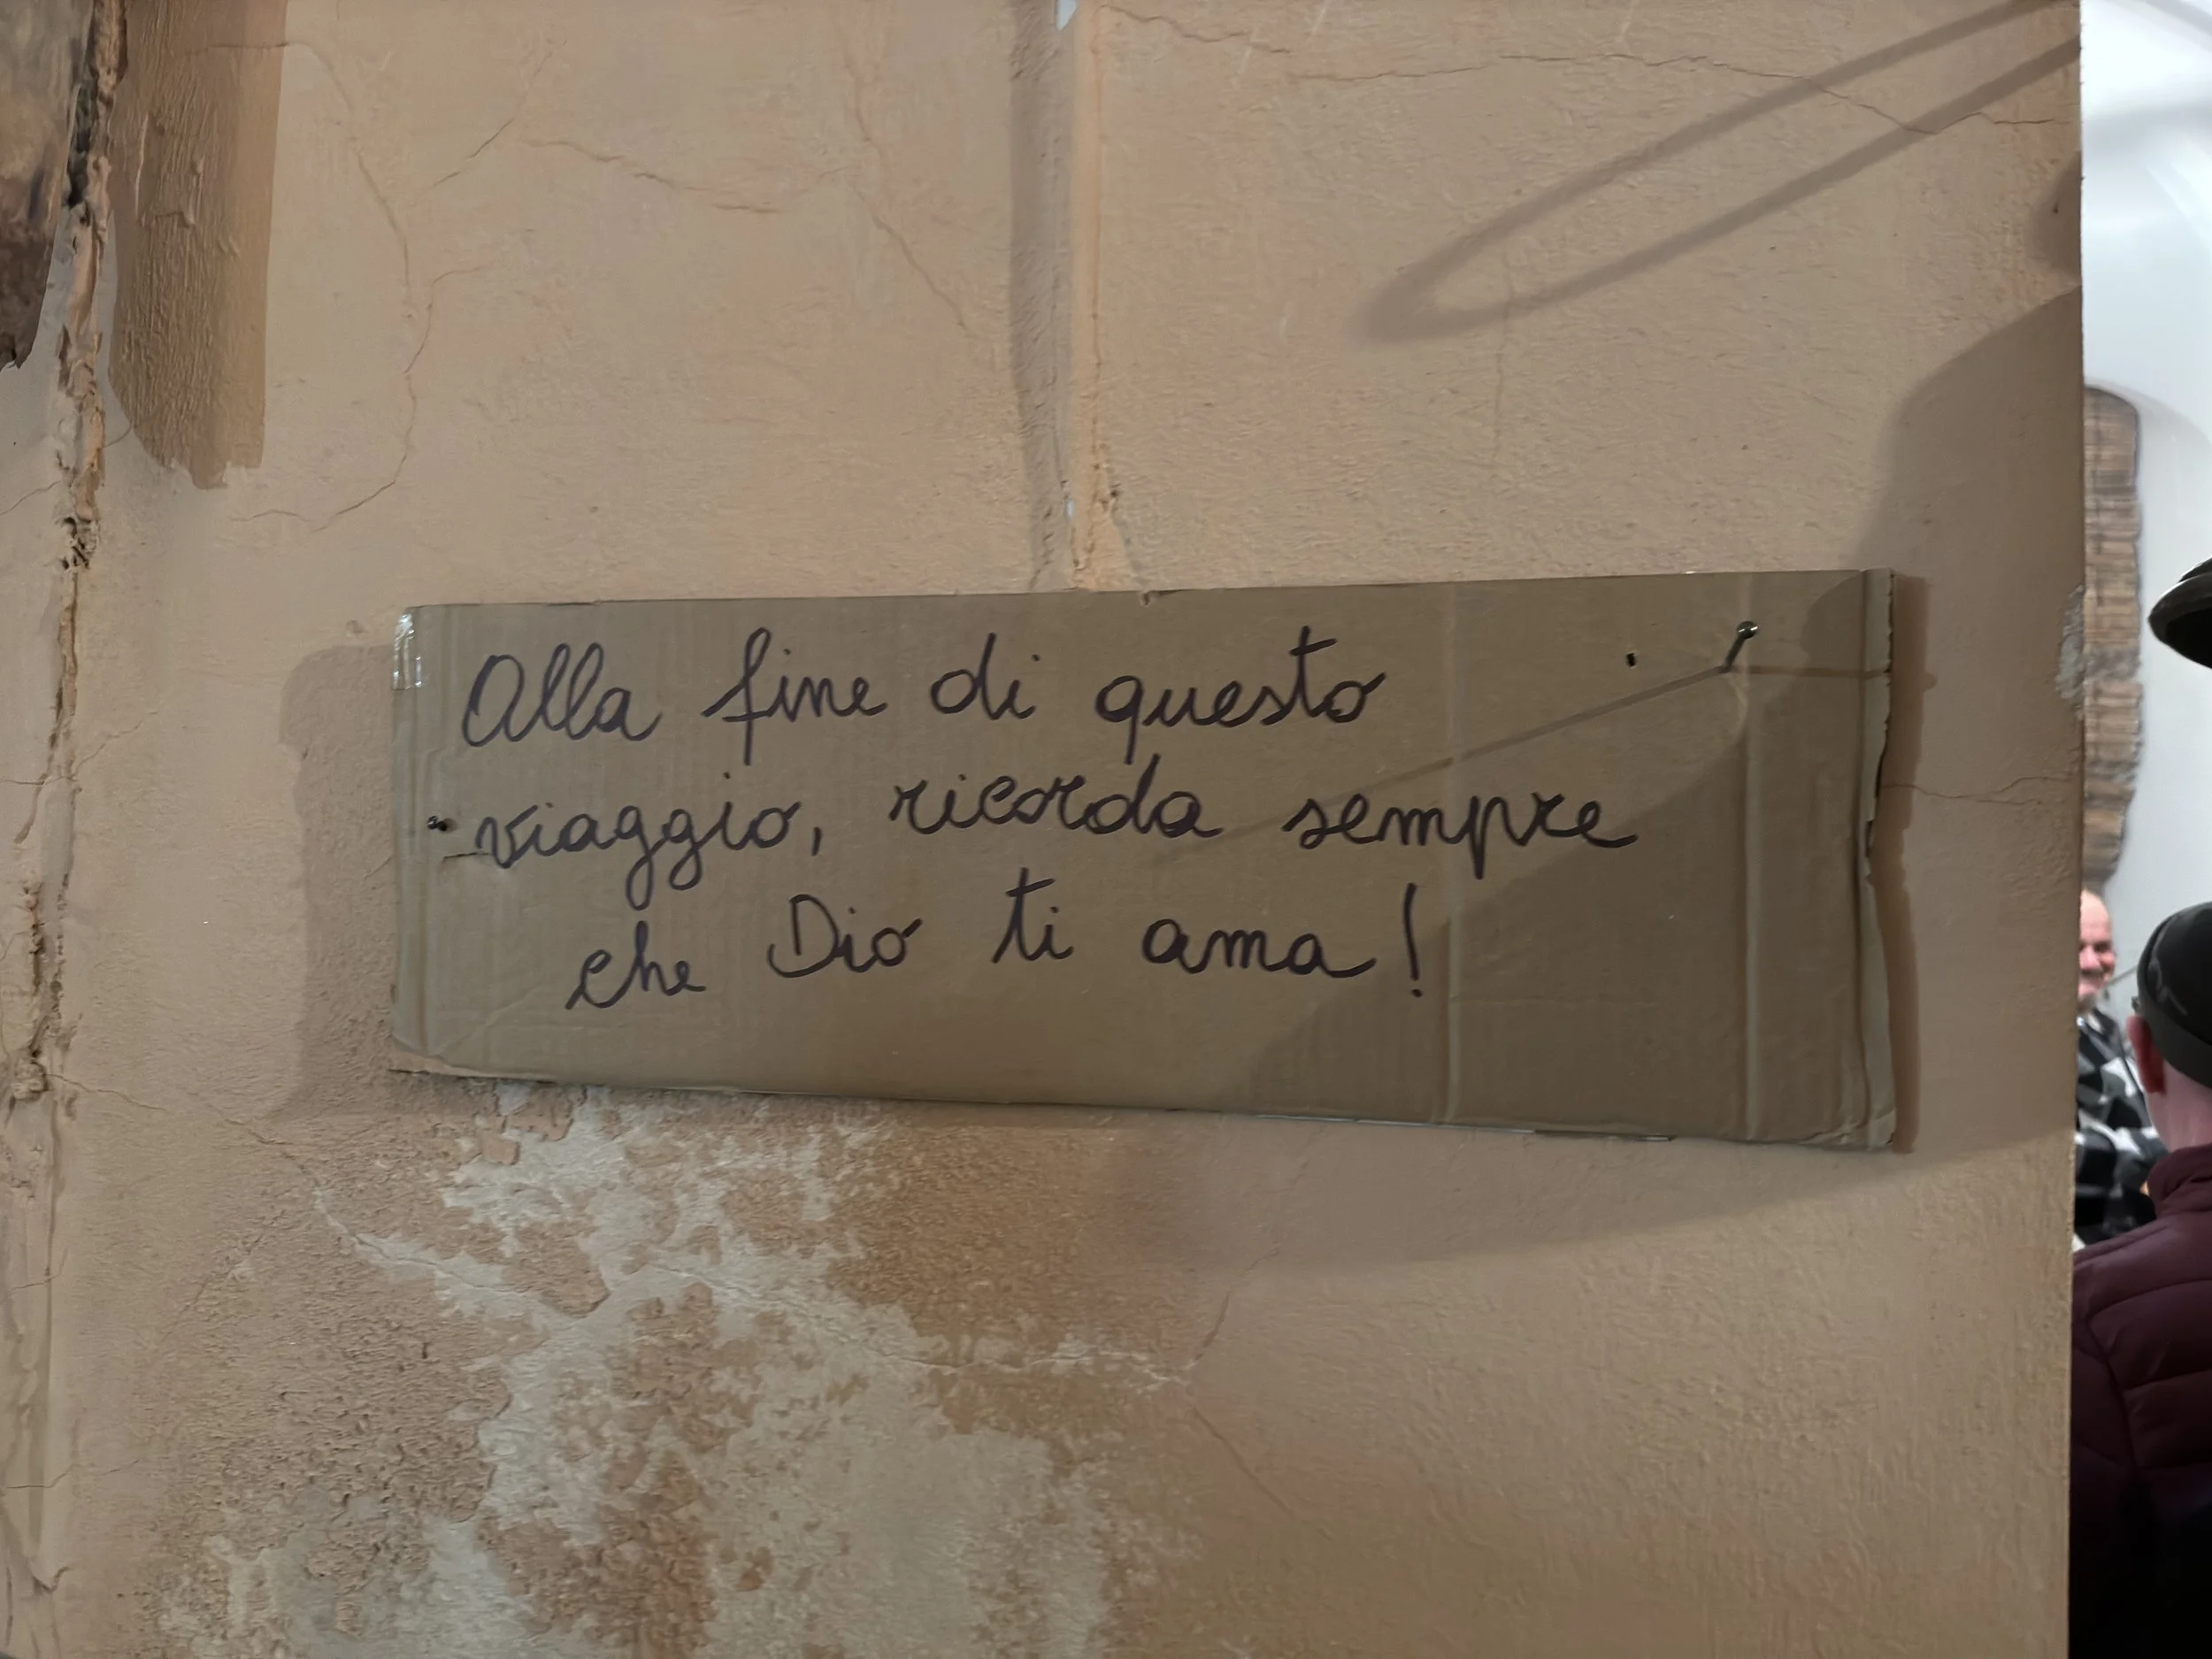 Alla fine di questo
viaggio, ricorda sempre
che Dio ti ama!